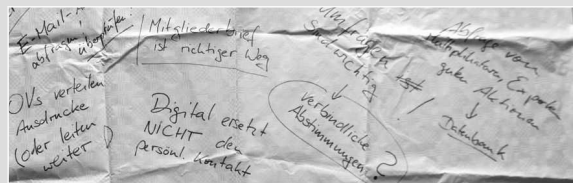 E-Mail-
abfragen,
überprüfen!
Mitgliederbrief
ist richtiger Weg
OVs verteilen
Ausdrucke
(oder leiten
weiter)
Digital ersetzt
NICHT den
persönl. Kontakt
Umfragen
Sind wichtig!
↓
verbindliche
Abstimmungen?
Abfrage von
guten Aktionen
↓
Datenbank